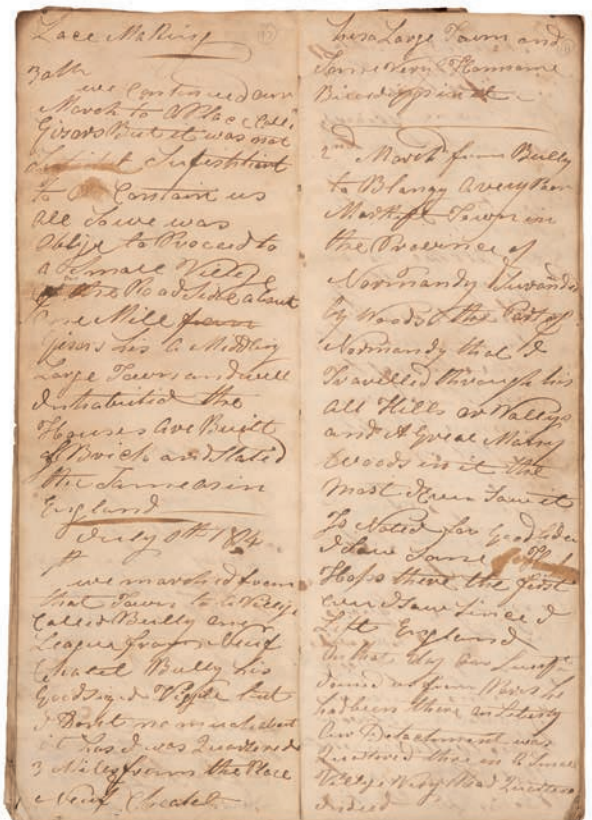 Lace Making
30th
we continued our
March to A Place Call'd
Gizors But it was not
Sufishent
to Contain us
All So we was
Oblige to Proceed to
a Small Village
the Road Side about
One Mile from
Gizors his A Middling
Large Town and well
Inhabitid the
Houses Are Built
of Brick and Slated
the Same as in
England
July
1st
we marched from
that Town to a Village
Called Bully one
League from Neuf
Chatel Bully his
Good sized Village but
I Don't no much about
it has I was Quartered
3 Miles from the Place
Neuf Chatel
his a Large Town and
Some Very Hansome
Buildings in it
2nd March from Bully
to Blangy a very Poor
Market Town in
the Province of
Normandy
by Woods the Part of
Normandy that I
Travelled through his
All Hills or Valleys
and A Great Many
Woods in it the
Most I Ever Saw it
Is Noted for Good Cider
I Saw Some
Hops there the first
ever I saw Since I
Left England
On that day Our
from Paris he
had been there on Liberty
Our Detachment was
Quartered there in A Small
Village Very Bad Quarters
Indeed